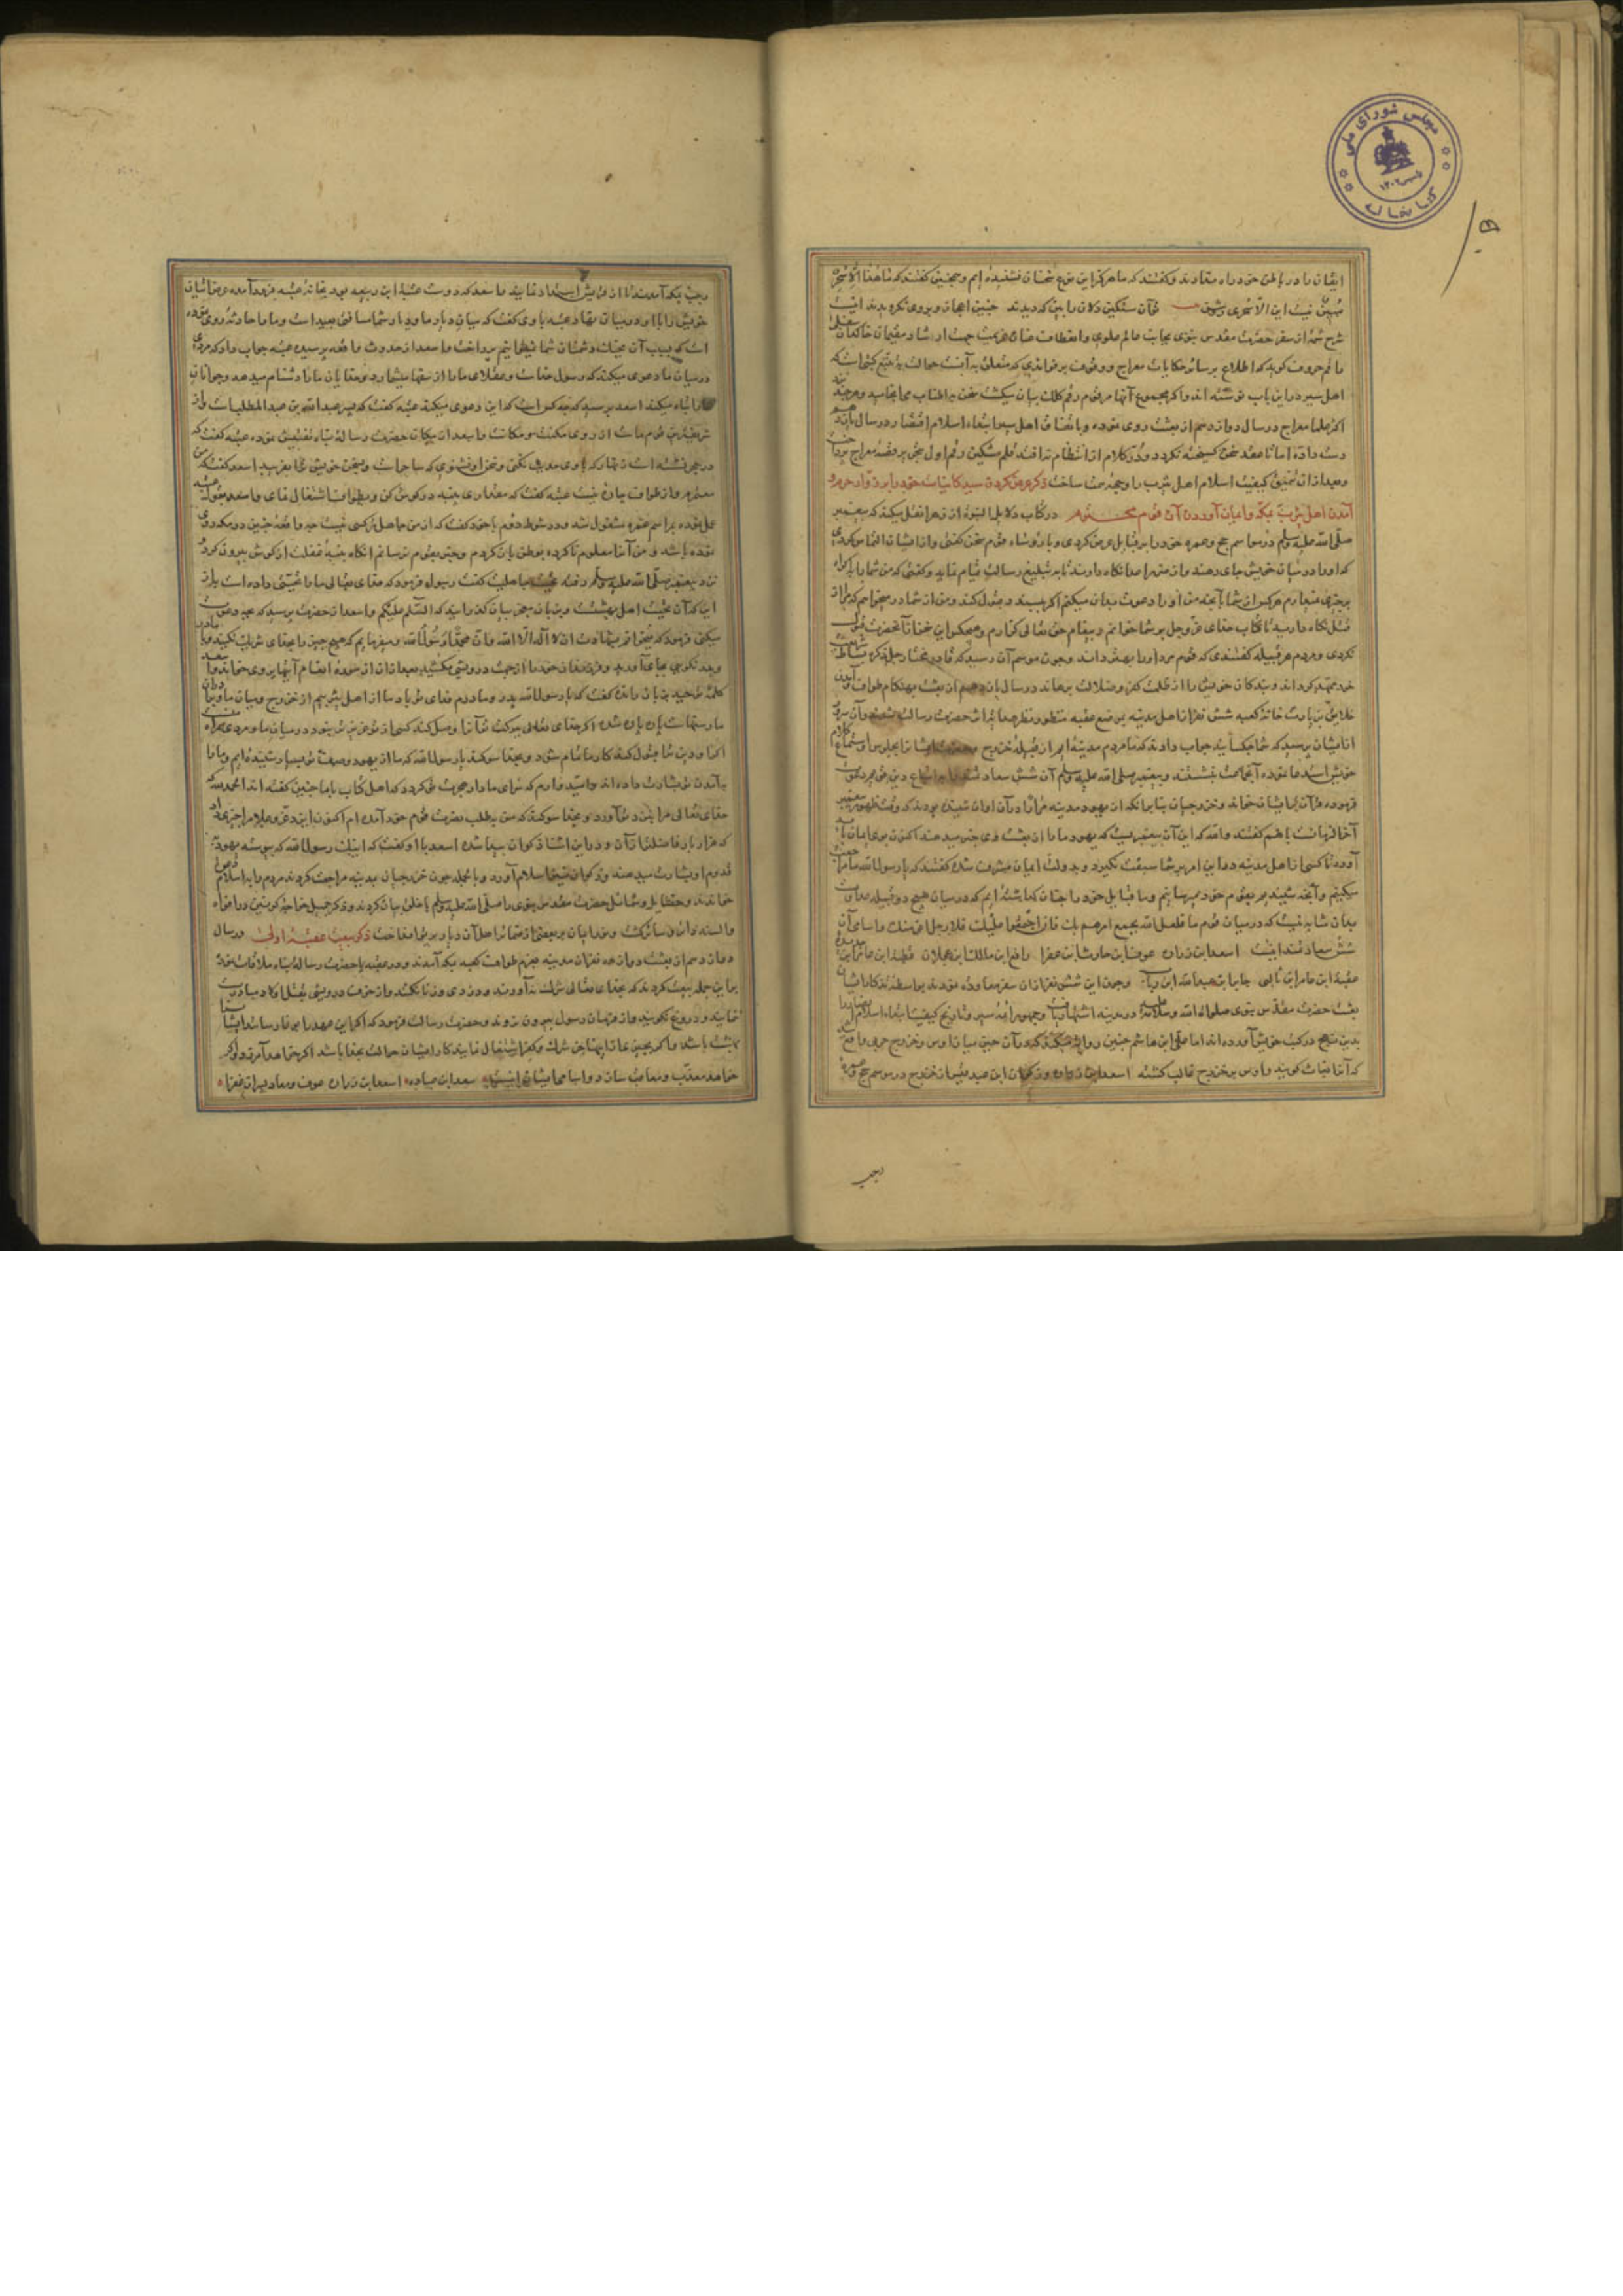 مجلس شورای ملی
کتابخانه
۱۳۰۲
ایشان را در باطن خود راه ندادند و گفتند که ما هرگز این نوع سخنان نشنیده ایم و همچنین گفتند که ما هذا الا سحر
مبین نیست این الا سحری
شرح شمه از سفر حضرت مقدس نبوی بجانب عالم علوی و انعطاف عنان
راقم حروف گوید که اطلاع بر سایر حکایات معراج و وقوف بر
اهل سیر در این باب نوشته اند و اگر مجموع آنها مرقوم رقم کلک بیان میگشت سخن باطناب می انجامید و هر چند
اکثر علما معراج در سال دوازدهم از بعثت روی نموده
دست داده اما تا عقد سخن گسیخته نگردد و در کلام از انتظام نیفتد قلم
و بعد از آن تحقیق کیفیت اسلام اهل یثرب را وجهه همت ساخت ذکر عرض کردن سید کاینات خود را بر
آمدن اهل یثرب بمکه و ایمان آوردن آن قوم در کتاب دلایل النبوة از زهرا نقل میکند که پیغمبر
صلی الله علیه وسلم در مواسم حج و عمره خود را بر قبایل عرض کردی و با رؤساء قوم سخن گفتی و از ایشان التماس کردی
که او را در میان خویش جای دهند و از متمردان نگاه دارند تا به تبلیغ رسالت قیام نماید و گفتی که من شما را به اکراه
بر چیزی نمیدارم هر کس از شما
قتل نگاه دارید تا کتاب خدای عز و جل بر شما خوانم و پیغام حق تعالی گذارم و هیچکس این سخن از آنحضرت قبول
نکردی و مردم هر قبیله گفتندی که قوم مرد او را بهتر دانند و چون موسم آن رسید که
خود ممهد گرداند و بندگان خویش را از ظلمت کفر و ضلالت برهاند در سال یازدهم از بعثت بهنگام طواف
خلایق بزیارت خانه کعبه شش نفر از اهل مدینه بموضع عقبه منظور نظر حضرت رسالت شدند و آن سرور
از ایشان پرسید که شما چه کسانید جواب دادند که ما مردم مدینه ایم از قبیله خزرج
خویش استدعا نموده آنجماعت بنشستند و پیغمبر صلی الله علیه وسلم آن شش
فرموده قرآن بر ایشان خواند و خزرجیان بنا بر آنکه از یهود مدینه
آخر الزمانست با هم گفتند والله که این آن پیغمبریست که یهود ما را از بعثت وی خبر میدهند اکنون بوی ایمان باید
آورد تا کسی از اهل مدینه در این امر بر شما سبقت نگیرد و بدولت ایمان مشرف شده گفتند که یا رسول الله ما مراجعت
میکنیم و آنچه شنیدیم بقوم خود میرسانیم و ما قبایل خود را چنان گذاشته ایم که در میان هیچ دو قبیله عداوت
بدان مثابه نیست که در میان قوم ما فلعل الله یجمع امرهم بک فان اجتمعوا علیک فلا رجل اعز منک و اسامی آن
شش سعادتمند اینست اسعد ابن زراره عوف ابن حارث ابن عفرا رافع ابن مالک ابن عجلان قطبة ابن عامر ابن
عقبة ابن عامر ابن نابی جابر ابن عبدالله ابن
بعثت حضرت مقدس نبوی صلوات الله و سلامه علیه در مدینه اشتهار یافت و جمهور ائمه سیر و تاریخ کیفیت ابتداء اسلام انصار را
بدین منهج در کتب خویش آورده اند اما علی ابن هاشم چنین روایت میکند که در آن حین میان اوس و خزرج حربی واقع شد
که آنرا بعاث گویند و اوس بر خزرج غالب گشته اسعد ابن زراره و ذکوان ابن عبد قیس از خزرج در موسم حج و عمره
رجب
رجب بمکه آمدند تا از قریش استمداد نمایند و اسعد که دوست عتبة ابن ربیعه بود بخانه عتبه فرود آمده
خویش را با او در میان نهاد عتبه با وی گفت که میان دیار ما و دیار شما مسافتی بعید است و ما را حادثه روی نموده
است که بسبب آن بجنگ دشمنان شما نمیتوانیم پرداخت اسعد از حدوث واقعه پرسید عتبه جواب داد که مردی
در میان ما دعوی میکند که رسول خداست و عقلای ما را از سفها میشمارد و خدایان ما را دشنام میدهد و جوانان
ما را تباه میکند اسعد پرسید که چه کس است که این دعوی میکند عتبه گفت که پسر عبدالله بن عبدالمطلب است و از
شریفترین قوم ماست
در حجر نشسته است زنهار که با وی حدیث نکنی و سخن او نشنوی که ساحر است و بسخن خویش ترا بفریبد اسعد گفت که من
معتمرم و از طواف چاره نیست عتبه گفت که مقداری پنبه در گوش کن و بطواف اشتغال نمای و اسعد بقول عتبه
عمل نموده بمراسم عمره مشغول شد و در شوط دوم با خود گفت که از من جاهل تر کسی نیست چه واقعه چنین در مکه روی
نموده باشد و من آنرا معلوم ناکرده بوطن باز گردم و خبر بقوم نرسانم آنگاه پنبه غفلت از گوش بیرون کرده
نزد پیغمبر صلی الله علیه وسلم رفته بتحیت جاهلیت گفت رسول فرمود که خدای تعالی ما را تحیتی داده است بهتر از
این که آن تحیت اهل بهشت است السلام علیکم و اسعد از حضرت پرسید که بچه دعوت
میکنی فرمود که میخوانم بشهادت ان لا اله الا الله و ان محمدا رسول الله و میفرمایم که هیچ چیز را بخدای شریک نکنید و با مادر
و پدر نکویی بجای آورید و فرزندان خود را از جهت درویشی مکشید بعد از آن از سوره انعام آیتها بر وی خواند و اسعد
کلمه توحید بر زبان رانده گفت که یا رسول الله پدر و مادرم فدای تو باد ما از اهل یثربیم از خزرج و میان ما و برادران
ما ریسمانها پاره شده اگر خدای تعالی ببرکت تو آنرا وصل کند کسی از تو عزیزتر نبود و در میان ما و مردی همراه
اگر او دین شما قبول کند کار ما تمام شود و بخدا سوگند یا رسول الله که ما از یهود وصف تو بسیار شنیده ایم و ما را
به آمدن تو بشارت داده اند و امیدوارم که سرای ما دار هجرت تو گردد که اهل کتاب با ما چنین گفته اند الحمد لله که
خدای تعالی مرا بنزد تو آورد و بخدا سوگند که من بطلب نصرت قوم خود آمده ام اکنون ایزد عز و علا مرا چیزی داد
که هزار بار فاضلتر از آن و در این اثنا ذکوان پیدا شد اسعد با او گفت که اینک رسول الله که پیوسته یهود
قدوم او بشارت میدهند و ذکوان نیز اسلام آورد و بالجمله چون خزرجیان بمدینه مراجعت کردند مردم را به اسلام
خواندند و خصایل و شمایل حضرت مقدس نبوی را صلی الله علیه وسلم با خلق بیان کردند و ذکر جمیل خواجه کونین در افواه
و السنه و سایر گشت و نور ایمان بر بعضی از ضمایر اهل آن دیار پرتو انداخت ذکر بیعت عقبه اولی در سال
دوازدهم از بعثت دوازده نفر از مدینه بعزم طواف کعبه بمکه آمدند و در عقبه با حضرت رسالت پناه ملاقات نموده
بر این جمله بیعت کردند که بخدای تعالی شرک نیاورند و دزدی و زنا نکنند و از خوف درویشی بقتل اولاد مبادرت
ننمایند و دروغ نگویند و از فرمان رسول بیرون نروند و حضرت رسالت فرمود که اگر این عهد را بوفا رسانید
بهشت باشد و اگر
خواهد معذب و معاقب سازد و اسامی ایشان اینست سعد ابن عباده اسعد ابن زراره عوف و معاذ پسران عفرا